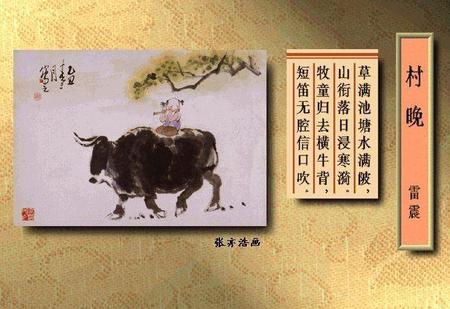 村晚
雷震
草满池塘水满陂，
山衔落日浸寒漪。
牧童归去横牛背，
短笛无腔信口吹。
张亦浩画